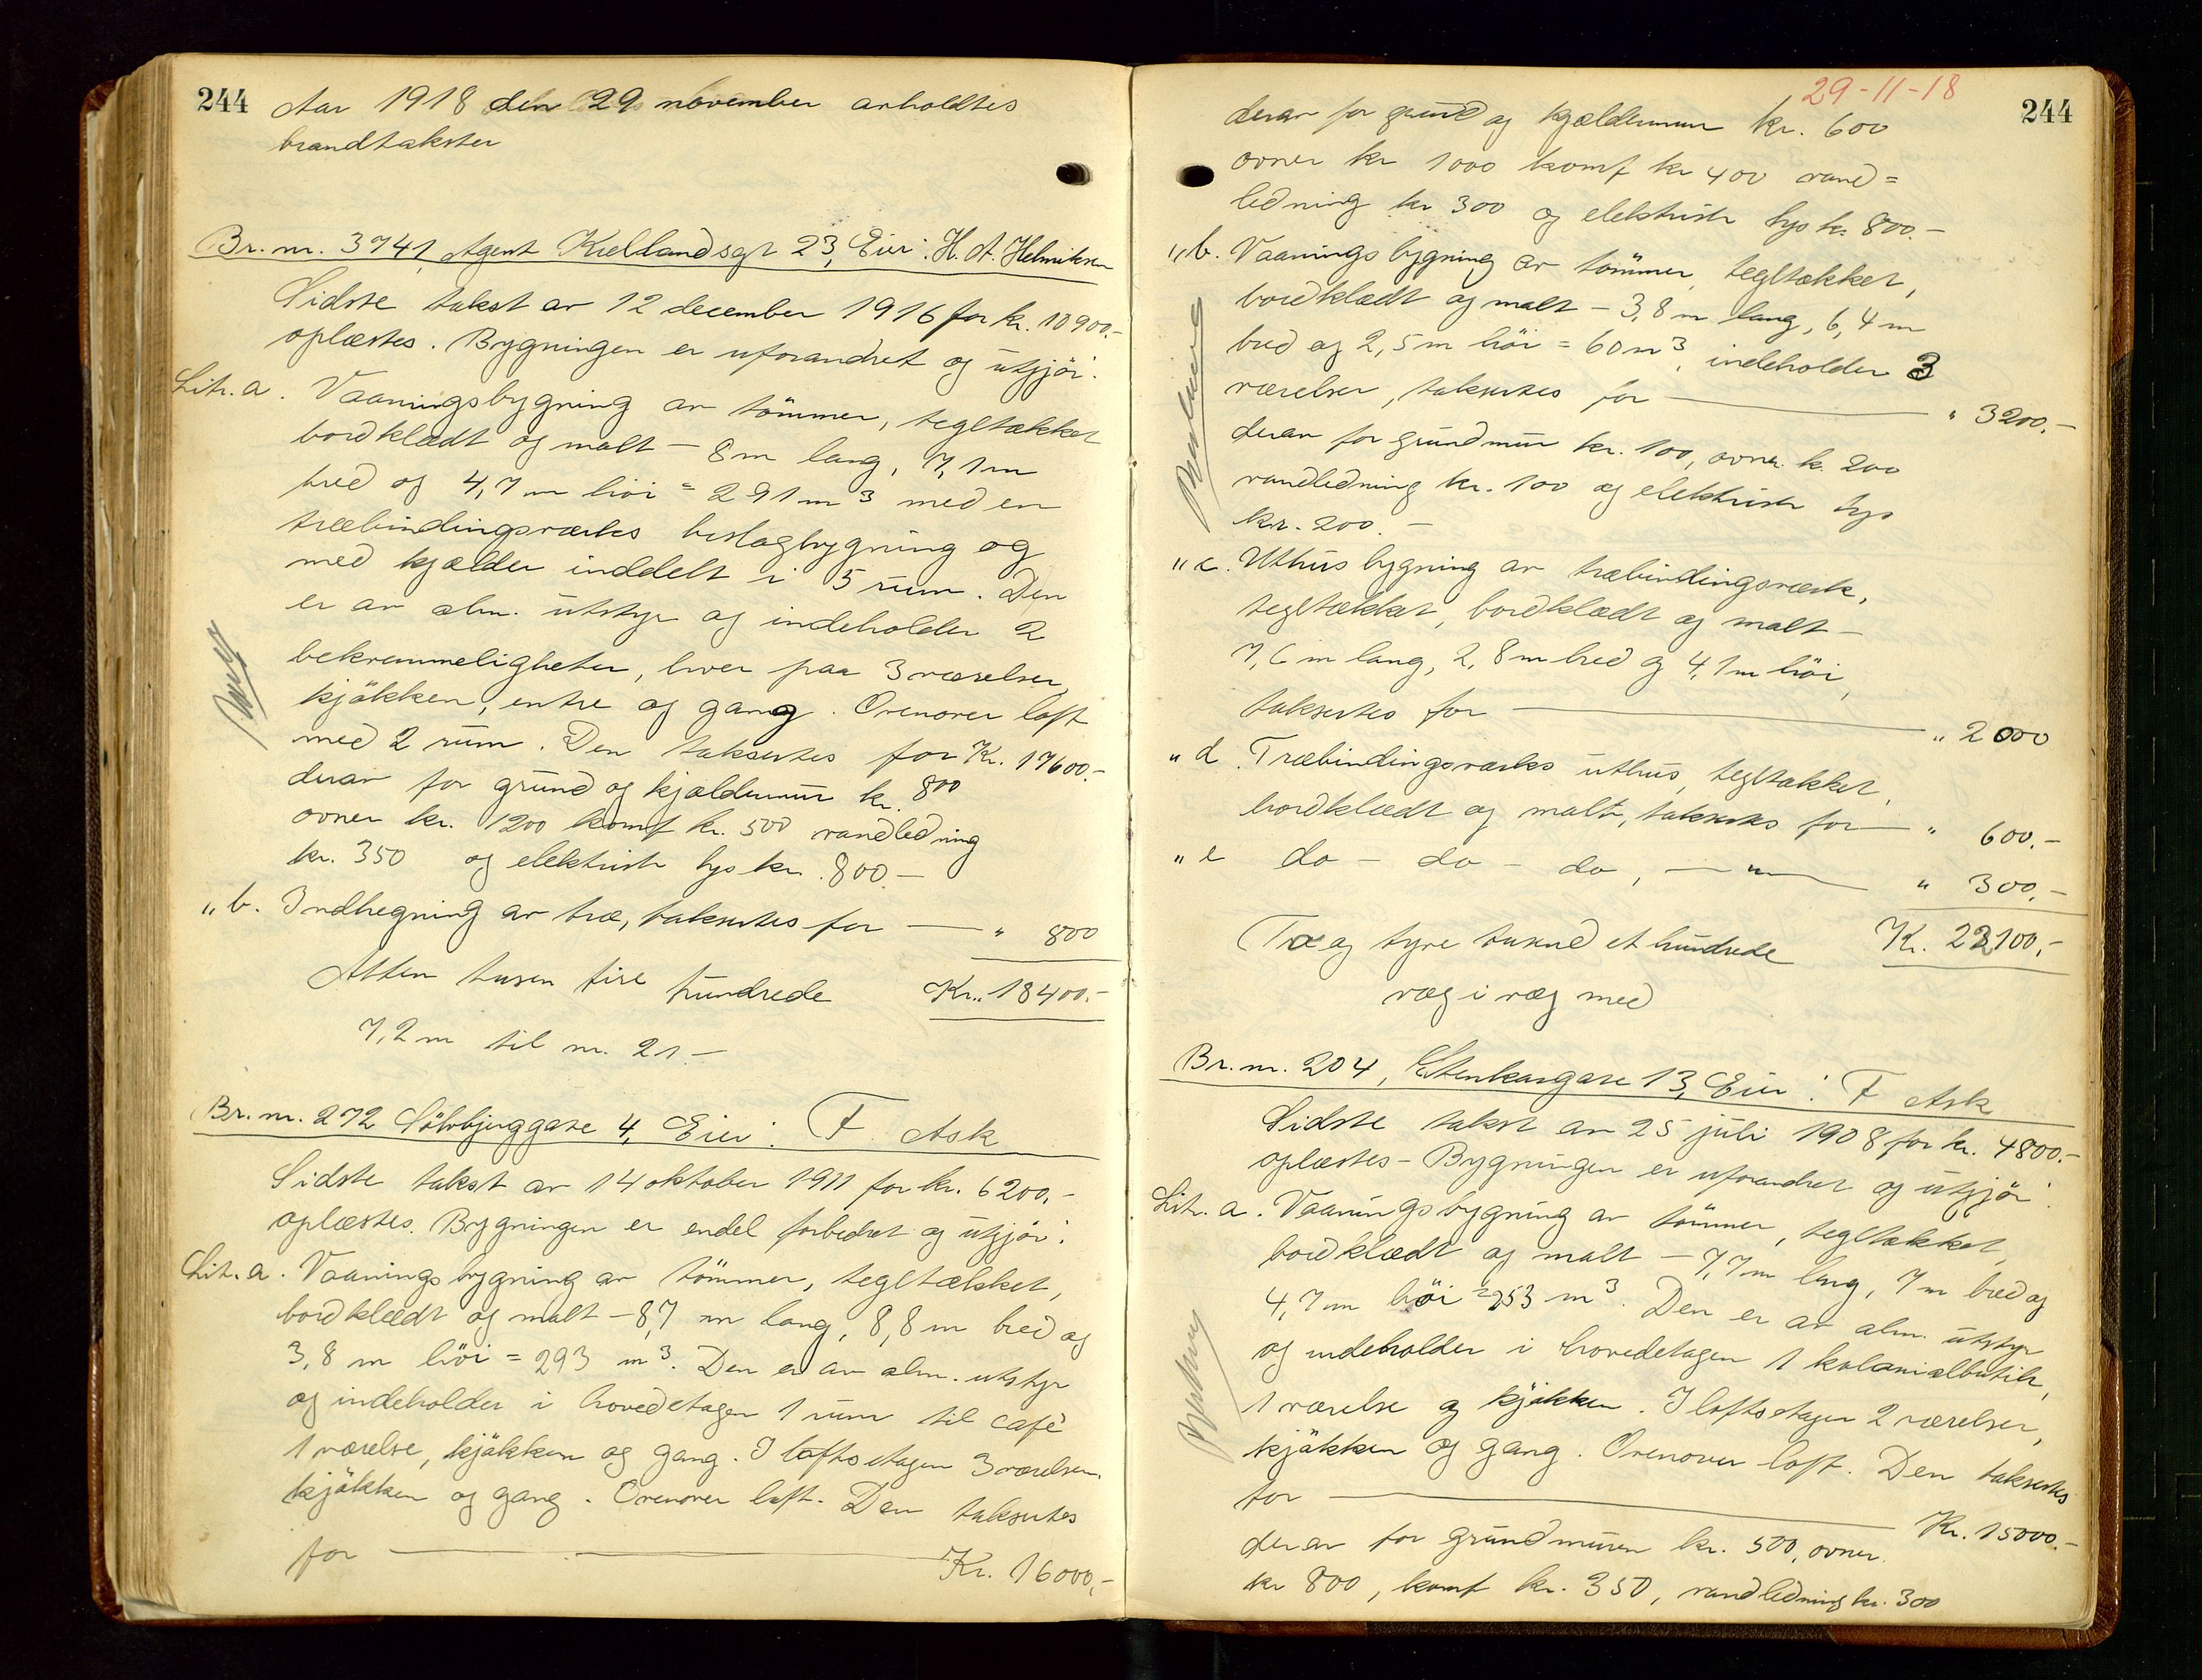 244
Aar 1918 den 29 november avholdtes
brandtakster
Br. nr. 3741, Agent Kiellandsgt 23, Eier: H. A. Helmiksen
Sidste takst av 12 december 1916 for kr. 10900.-
oplæstes. Bygningen er uforandret og utgjør:
Litr. a. Vaaningsbygning av tömmer, tegltækket
bordklædt og malt - 8 m lang, 7,1 m
bred og 4,7 m höi = 291 m3 med en
træbindingsværks beslagbygning og
med kjælder inddelt i 5 rum. Den
er av alm. utstyr og indeholder 2
bekvemmeligheter, hver paa 3 værelser,
kjökken, entre og gang. Ovenover loft
med 2 rum. Den takseres for Kr. 17600.-
derav for grund og kjældermur kr. 800
ovner kr. 1200 komf kr. 500 vandledning
kr. 350 og elektrisk lys kr. 800.-
„ b. Indhegning av træ, takseres for — „ 800
Atten tusen fire hundrede Kr. 18400.-
7,2 m til nr. 21 -
Br. nr. 272 Sölvbjerggate 4, Eier: F. Ask
Sidste takst av 14 oktober 1911 for kr. 6200.-
oplæstes. Bygningen er endel forbedret og utgjör:
Lit. a. Vaaningsbygning av tömmer, tegltækket,
bordklædt og malt - 8,7 m lang, 8,8 m bred og
3,8 m höi = 293 m3. Den er av alm. utstyr
og indeholder i hovedetagen 1 rum til café
1 værelse, kjökken og gang. I loftsetagen 3 værelser,
kjökken og gang. Ovenover loft. Den takseres
for — Kr. 16000,-
29-11-18
244
derav for grund og kjældermur kr. 600
ovner kr 1000 komf kr 400 vand=
ledning kr 300 og elektrisk lys kr. 800.-
„ b. Vaaningsbygning av tömmer, tegltækket,
bordklædt og malt - 3,8 m lang, 6,4 m
bred og 2,5 m höi = 60 m3, indeholder 3
værelser, takseres for — „ 3200.-
derav for grundmur kr. 100, ovner k. 200
vandledning kr. 100 og elektrisk lys
kr. 200.-
„ c. Uthusbygning av træbindingsværk,
tegltækket, bordklædt og malt -
7,6 m lang, 2,8 m bred og 4,1 m höi,
takseres for — „ 2000
„ d. Træbindingsværks uthus, tegltækket,
bordklædt og malt, takseres for — „ 600.-
„ e do - do - do, — „ — „ 300.-
To og tyve tusend et hundrede Kr. 22100,-
væg i væg med
Br. nr. 204, Stenkargate 13, Eier: F Ask
Sidste takst av 25 juli 1908 for kr. 4800.-
oplæstes - Bygningen er uforandret og utgjör:
Lit. a. Vaaningsbygning av tömmer, tegltækket,
bordklædt og malt - 7,7 m lang, 7 m bred og
4,7 m höi = 253 m3. Den er av alm. utstyr
og indeholder i hovedetagen 1 kolonialbutik,
1 værelse og kjökken. I loftsetagen 2 værelser,
kjökken og gang. Ovenover loft. Den takseres
for — Kr. 15000.-
derav for grundmuren kr. 500, ovner
kr 800, komf kr. 350, vandledning kr. 300